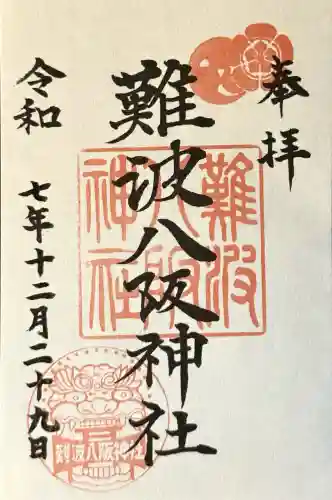 奉拝
難波八阪神社
令和
七年十二月二十九日
難波
八阪
神社
難波八阪神社